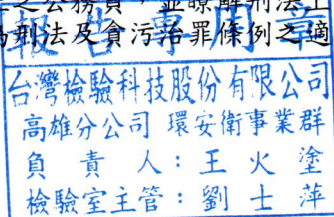 之公務員，並瞭解刑法上
刑法及貪污治罪條例之適
報告專用章
台灣檢驗科技股份有限公司
高雄分公司 環安衛事業群
負責人：王火塗
檢驗室主管：劉士萍